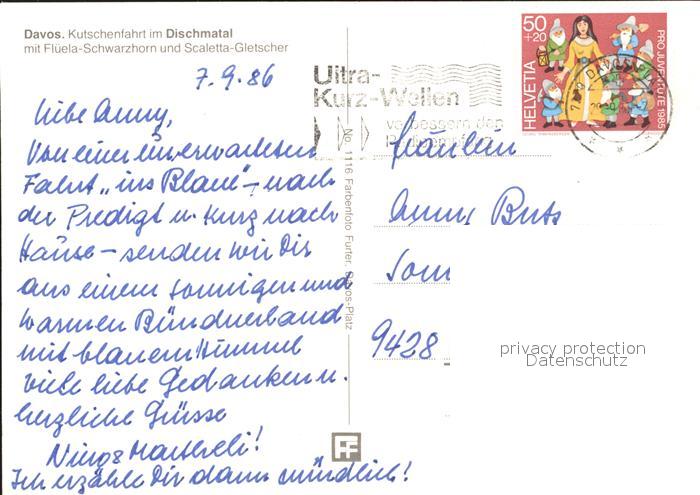 Davos. Kutschenfahrt im Dischmatal
mit Flüela-Schwarzhorn und Scaletta-Gletscher
7.9.86
Liebe Anny,
Von einer unerwarteten
Fahrt „ins Blaue" – nach
der Predigt u. kurz nach
Hause – senden wir Dir
aus einem sonnigen und
warmen Bündnerland
mit blauem Himmel
viele liebe Gedanken u.
herzliche Grüsse
Ich erzähle Dir dann mündlich!
No. 1116 Farbenfoto Furter, Davos-Platz
FF
Ultra-
Kurz-Wellen
verbessern den
50
+20
HELVETIA
PRO JUVENTUTE 1985
DAVOS
Fräulein
Anny
9428
privacy protection
Datenschutz